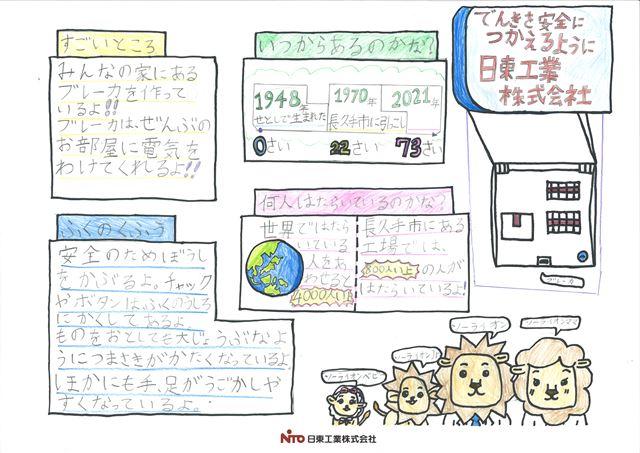 でんきを安全に
つかえるように
日東工業
株式会社
すごいところ
みんなの家にある
ブレーカを作って
いるよ!!
ブレーカは、ぜんぶの
お部屋に電気を
わけてくれるよ!!
いつからあるのかな?
1948年
せとしで生まれた
0さい
1970年
長久手市に引こし
22さい
2021年
73さい
何人はたらいているのかな?
世界ではたら
いている
人をあ
わせると
4000人!!
長久手市にある
工場では、
800人以上の人が
はたらいているよ!
ふくのくふう
安全のためぼうし
をかぶるよ。チャック
やボタンはふくのうしろ
にかくしてあるよ。
ものをおとしても大じょうぶなよ
うにつまさきがかたくなっているよ。
ほかにも手、足がうごかしや
すくなっているよ。
ブレーカ
ソーライオンベビー
ソーライオン
ソーライオンママ
NITO 日東工業株式会社